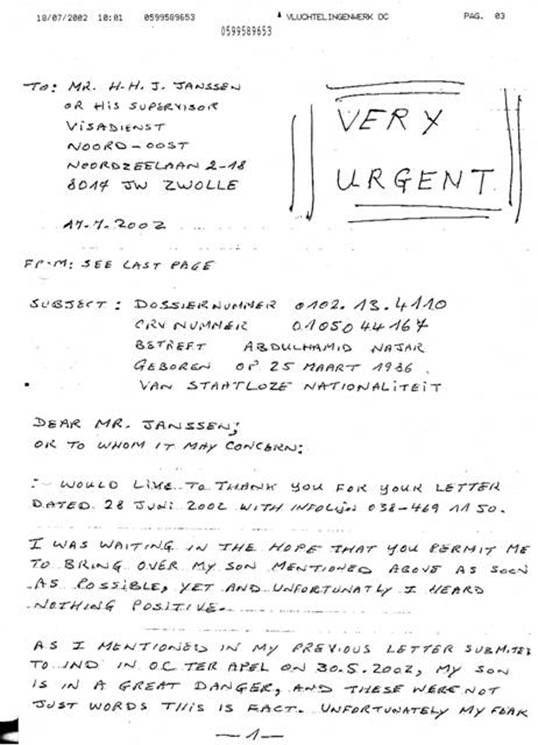 18/07/2002 10:01 0599589653 VLUCHTELINGENWERK OC PAG. 03
0599589653
TO: MR. H.H.J. JANSSEN
OR HIS SUPERVISOR
VISADIENST
NOORD-OOST
NOORDZEELAAN 2-18
8017 JW ZWOLLE
VERY
URGENT
17.7.2002
FROM: SEE LAST PAGE
SUBJECT: DOSSIERNUMMER 0102.13.4110
CRV NUMMER 0105044167
BETREFT ABDULHAMID NAJAR
GEBOREN OP 25 MAART 1986
VAN STAATLOZE NATIONALITEIT
DEAR MR. JANSSEN;
OR TO WHOM IT MAY CONCERN:
I WOULD LIKE TO THANK YOU FOR YOUR LETTER
DATED 28 JUNI 2002 WITH INFOLIJN 038-469 1150.
I WAS WAITING IN THE HOPE THAT YOU PERMIT ME
TO BRING OVER MY SON MENTIONED ABOVE AS SOON
AS POSSIBLE, YET AND UNFORTUNATLY I HEARD
NOTHING POSITIVE.
AS I MENTIONED IN MY PREVIOUS LETTER SUBMITED
TO IND IN OC TER APEL ON 30.5.2002, MY SON
IS IN A GREAT DANGER, AND THESE WERE NOT
JUST WORDS THIS IS FACT. UNFORTUNATELY MY FEAR
-1-